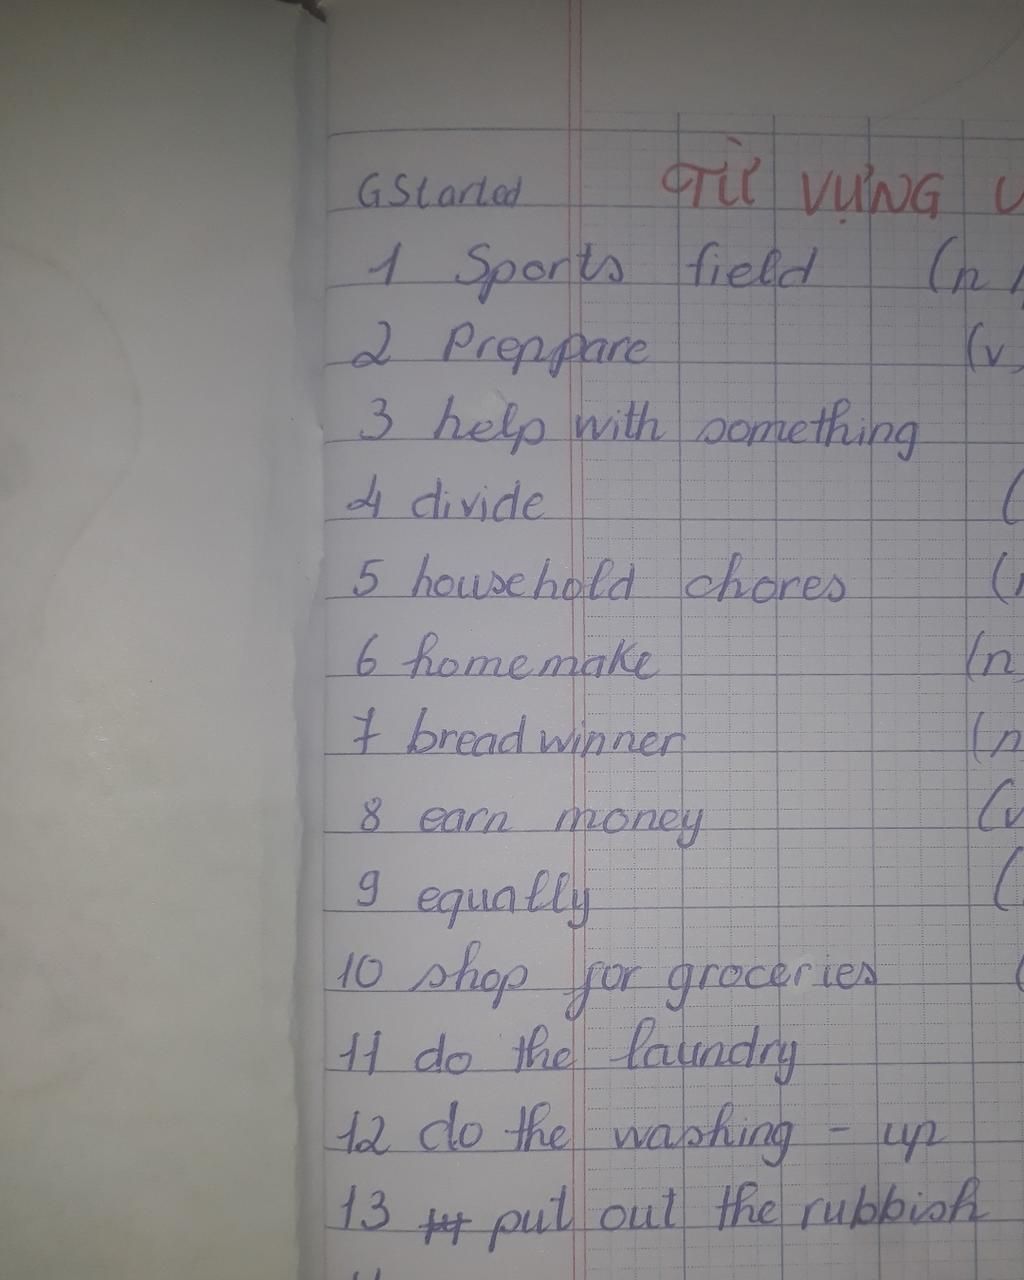 GStarted TỪ VỰNG U
1 Sports field (n
2 Preppare (v
3 help with something
4 divide (
5 household chores (
6 homemake (n
7 breadwinner (n
8 earn money (v
9 equally (
10 shop for groceries (
11 do the laundry
12 do the washing - up
13 put out the rubbish